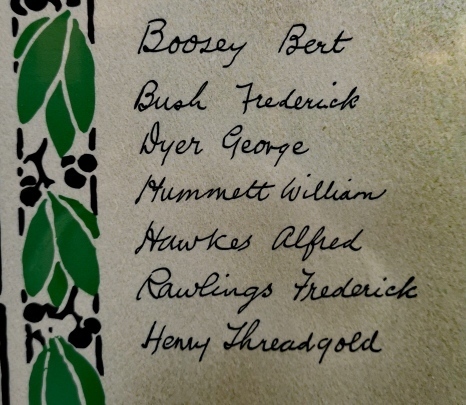 Boosey Bert
Bush Frederick
Dyer George
Hummett William
Hawkes Alfred
Rawlings Frederick
Henry Threadgold